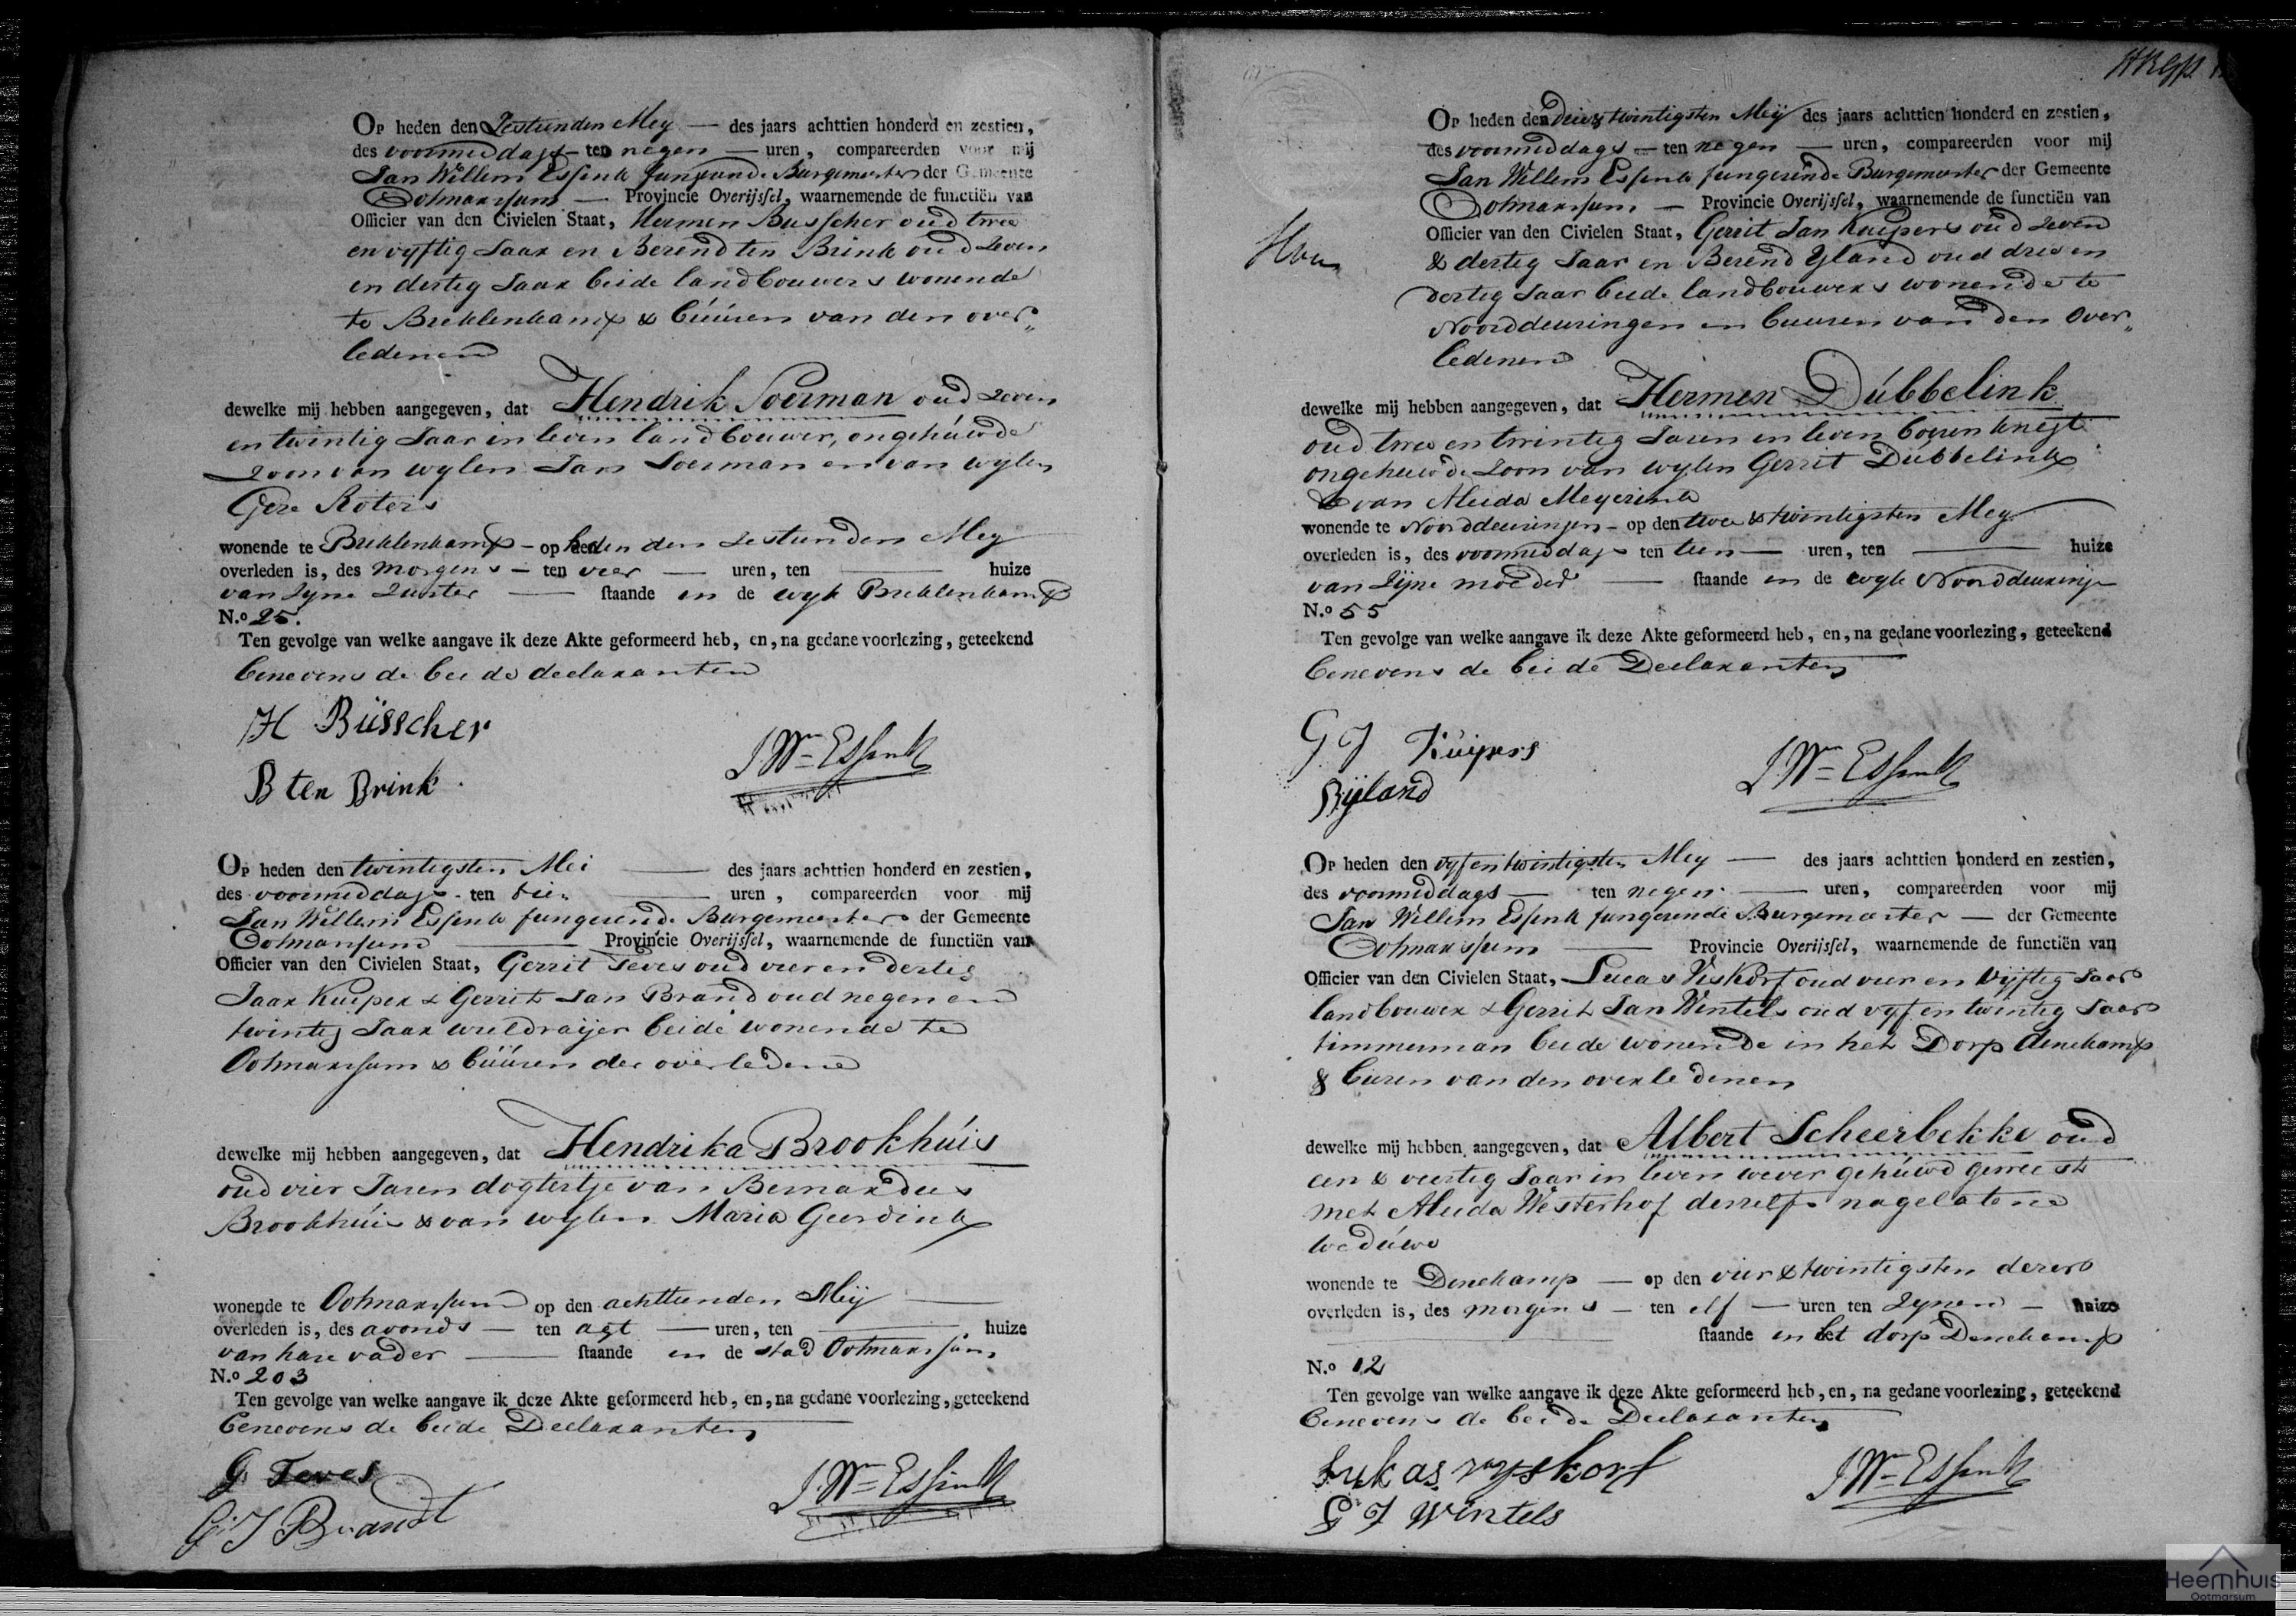 Op heden den Zestienden Mey — des jaars achttien honderd en zestien,
des voormiddags – ten negen — uren, compareerden voor mij
Jan Willem Essink fungerende Burgemeester der Gemeente
Ootmarssum — Provincie Overijssel, waarnemende de functiën van
Officier van den Civielen Staat, Hermen Busscher oud twee
en vyftig Jaar en Berend ten Brink oud zeven
en dertig Jaar beide landbouwers wonende
te Breklenkamp & büüren van den over„
ledenen
dewelke mij hebben aangegeven, dat Hendrik Soerman oud zeven
en twintig Jaar in leven landbouwer, ongehúwde
zoon van wylen Jan Soerman en van wylen
Gere Roters
wonende te Breklenkamp – op heden den zestienden Mey
overleden is, des morgens – ten vier — uren, ten — huize
van zyne zuster — staande in de wyk Breklenkamp
N.o 25.
Ten gevolge van welke aangave ik deze Akte geformeerd heb, en, na gedane voorlezing, geteekend
benevens de beide declaranten
H Büsscher
B ten Brink
J Wm Essink
Op heden den twintigsten Mei — des jaars achttien honderd en zestien,
des voormiddags – ten tien — uren, compareerden voor mij
Jan Willem Essink fungerende Burgemeester der Gemeente
Ootmarssum — Provincie Overijssel, waarnemende de functiën van
Officier van den Civielen Staat, Gerrit Teves oud vier en dertig
Jaar Kuiper & Gerrit Jan Brand oud negen en
twintig Jaar wieldraijer beide wonende te
Ootmarssum & büüren der overledene
dewelke mij hebben aangegeven, dat Hendrika Brookhúis
oud vier Jaren dogtertje van Bernardus
Brookhúis & van wylen Maria Geerdink
wonende te Ootmarssum op den achttienden Meij —
overleden is, des avonds — ten agt — uren, ten — huize
van hare vader — staande in de stad Ootmarssum
N.o 203
Ten gevolge van welke aangave ik deze Akte geformeerd heb, en, na gedane voorlezing, geteekend
benevens de beide Declaranten
G Teves
G J Brandt
J. Wm Essink
Op heden den drie & twintigsten Meij des jaars achttien honderd en zestien,
des voormiddags – ten negen — uren, compareerden voor mij
Jan Willem Essink fungerende Burgemeester der Gemeente
Ootmarssum — Provincie Overijssel, waarnemende de functiën van
Officier van den Civielen Staat, Gerrit Jan Kuipers oud zeven
& dertig Jaar en Berend Yland oud drie en
dertig Jaar beide landbouwers wonende te
Noorddeuringen en buuren van den Over„
ledenen
dewelke mij hebben aangegeven, dat Hermen Dúbbelink
oud twee en twintig Jaren in leven boeren knegt
ongehuwde zoon van wylen Gerrit Dubbelink
& van Aleida Meyerink
wonende te Noorddeuringen – op den twee & twintigsten Mey
overleden is, des voormiddags ten tien — uren, ten — huize
van zijne moeder — staande in de wyk Noorddeuringen
N.o 55
Ten gevolge van welke aangave ik deze Akte geformeerd heb, en, na gedane voorlezing, geteekend
benevens de beide Declaranten
G J Kúipers
B ijland
J Wm Essink
Op heden den vyf en twintigsten Mey — des jaars achttien honderd en zestien,
des voormiddags — ten negen — uren, compareerden voor mij
Jan Willem Essink fungerende Burgemeester — der Gemeente
Ootmarssum — Provincie Overijssel, waarnemende de functiën van
Officier van den Civielen Staat, Lucas Viskorf oud vier en vijftig Jaar
landbouwer & Gerrit Jan Wentels oud vyf en twintig Jaar
timmerman beide wonende in het Dorp Denekamp
& buren van den overledenen
dewelke mij hebben aangegeven, dat Albert Scheerbekke oud
een & veertig Jaar in leven wever gehúwd geweest
met Aleida Westerhof deszelfs nagelatene
wedúwe
wonende te Denekamp — op den vier & twintigsten dezer
overleden is, des morgens – ten elf — uren ten zynen – huize
— staande in het dorp Denekamp
N.o 12
Ten gevolge van welke aangave ik deze Akte geformeerd heb, en, na gedane voorlezing, geteekend
benevens de beide Declaranten
Lukas vyskorf
G J Wintels
J Wm Essink
Heemhuis
Ootmarsum